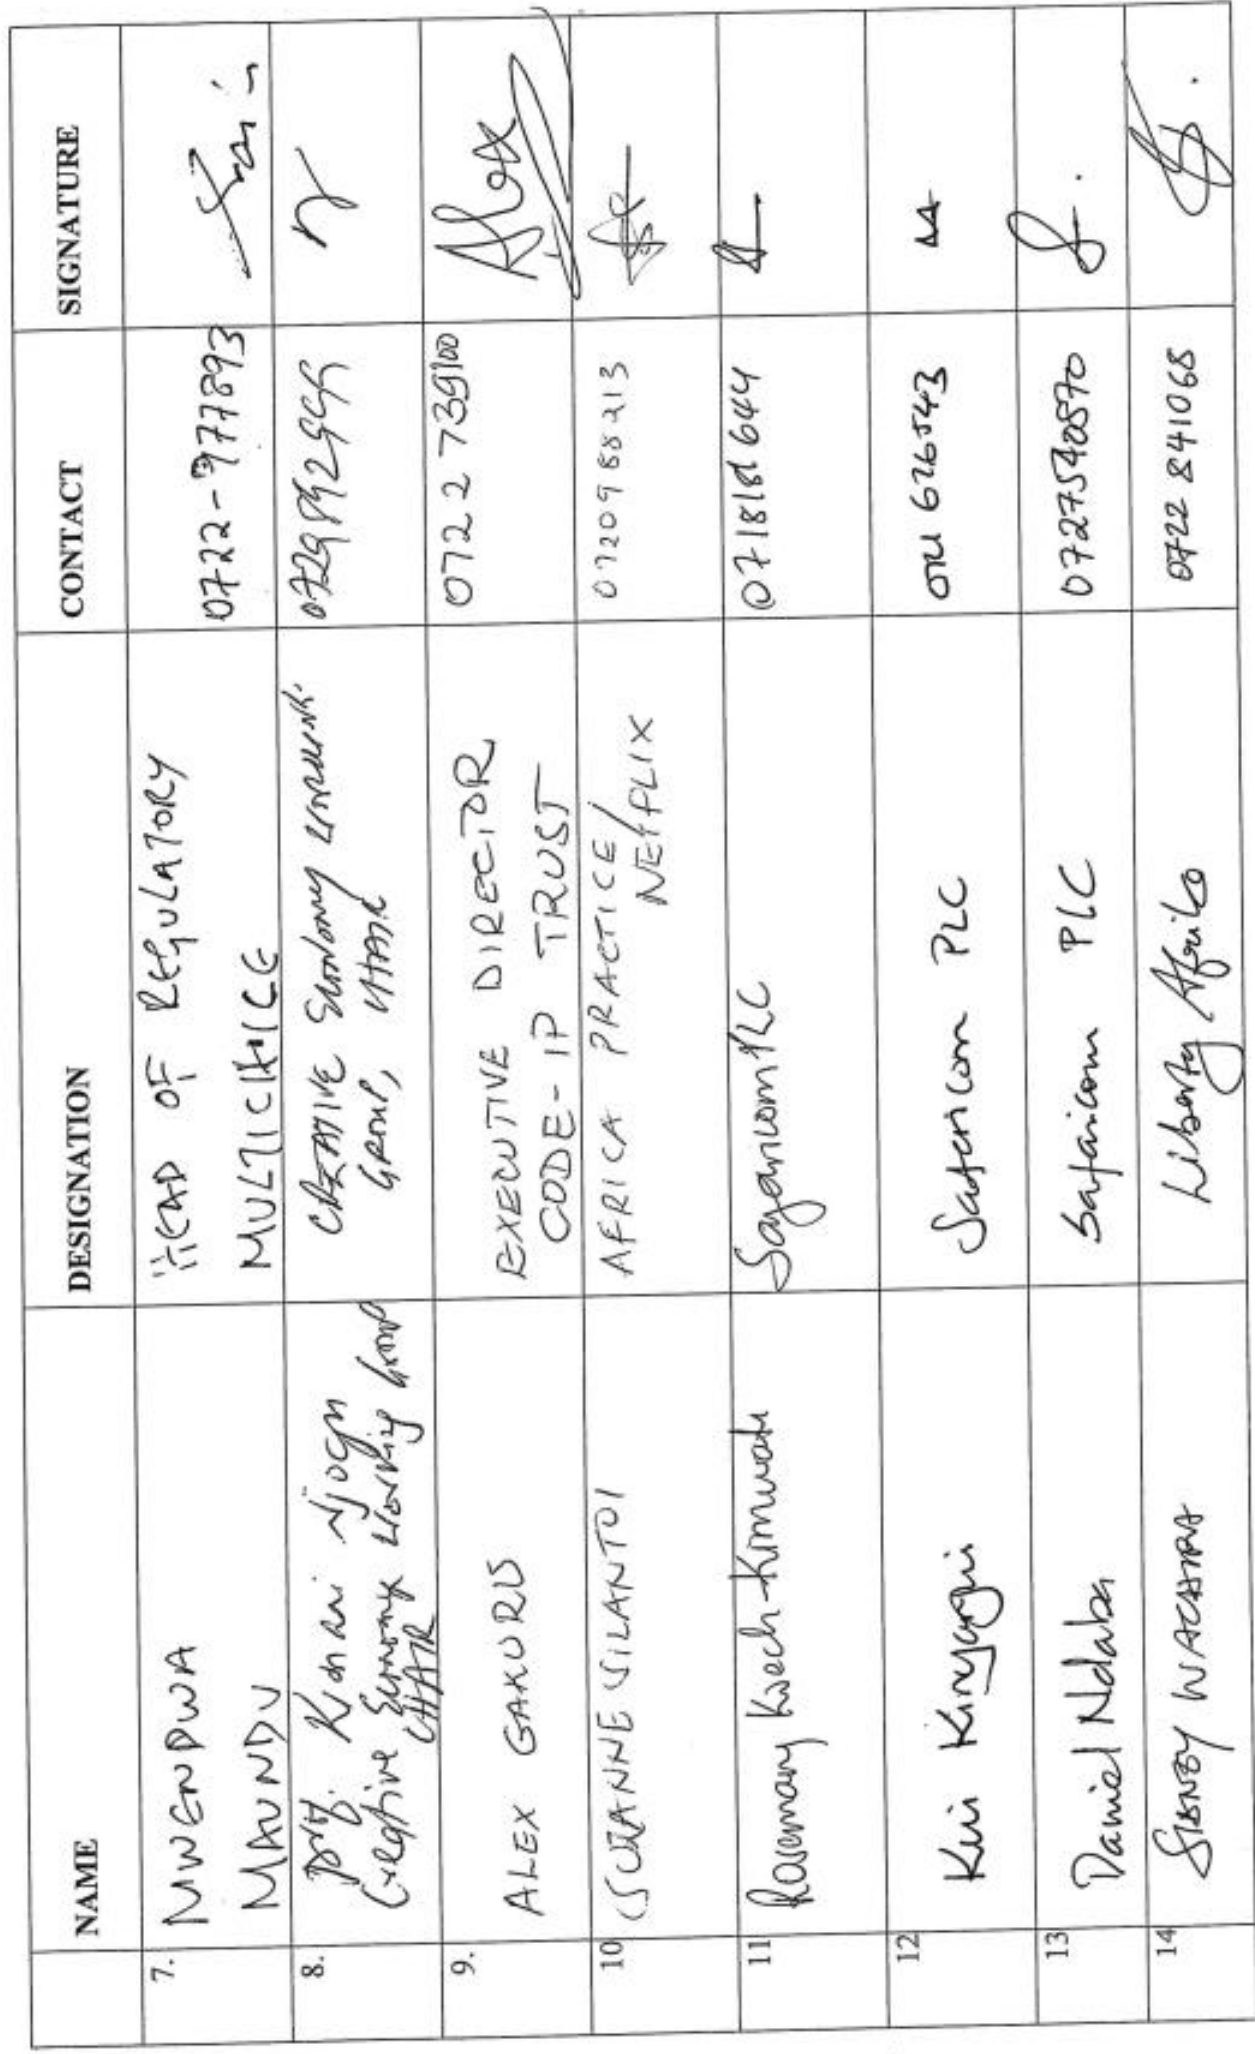 NAME DESIGNATION CONTACT SIGNATURE
7. MWENDWA
MAUNDU
HEAD OF REGULATORY
MULTICHOICE
0722-977893
8. Prof. Kimani Njogu
Creative Economy Working Group
CHAIR
CREATIVE Economy WORKING
GROUP, CHAIR
9. ALEX GAKURU
EXECUTIVE DIRECTOR
CODE-IP TRUST
0722 739100
Alex
10 SUZANNE SILANTOI
AFRICA PRACTICE/
NETFLIX
0720988213
11 Rosemary Koech-Kimwatu
Safaricom PLC
0718181644
12 Kui Kinyanjui
Safaricom PLC
626543
13 Daniel Ndaba
Safaricom PLC
0727540570
14 SIDNEY WACHIRA
Liberty Afrika
0722 841068